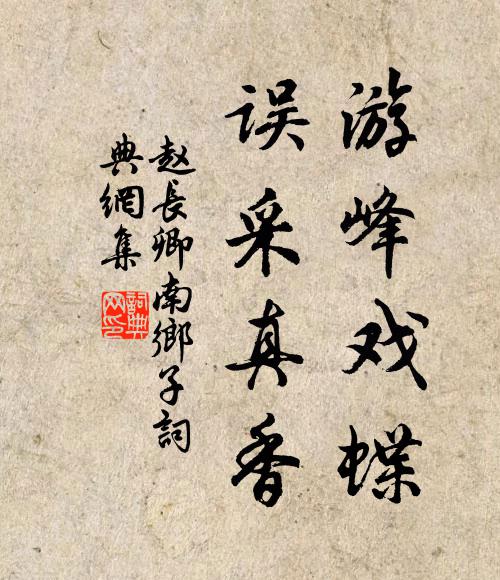 游峰戏蝶
误采真香
赵長卿南鄉子詞
典網集
詞典网印